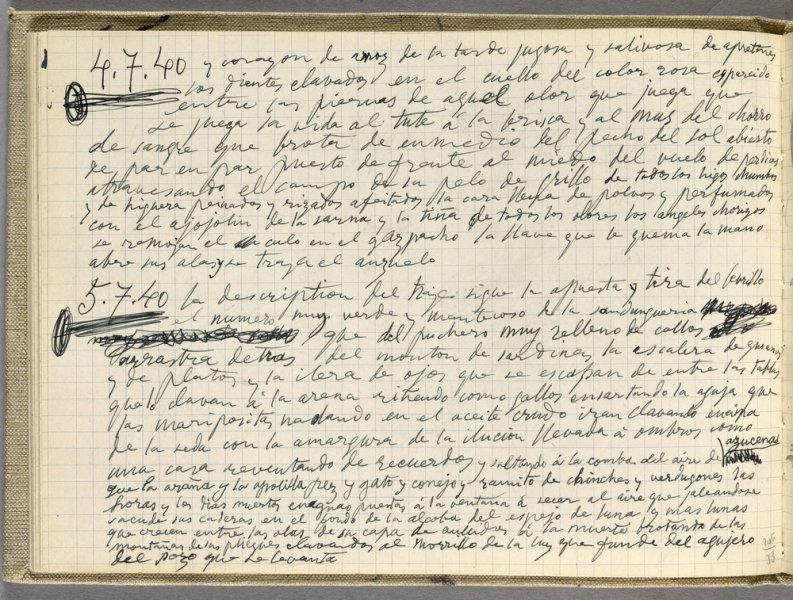 4.7.40 y corazon de arroz de la tarde jugosa y salivosa de apretones
los dientes clavados en el cuello del color rosa esparcido
entre las piernas de aquel olor que juega que
se juega la vida al tute á la brisca y al mus del chorro
de sangre que brota de enmedio del pecho del sol abierto
de par en par puesto de frente al miedo del vuelo de perdices
atravesando el campo de su pelo de grillo de todos los higos chumbos
y de higuera peinados y rizados afeitados la cara llena de polvos y perfumados
con el ajojolin de la sarna y la tiña de todos los olores los angeles chorizos
se remojan el culo en el gazpacho la llave que te quema la mano
abre sus alas y se traga el anzuelo
5.7.40 la description del traje sigue la apuesta y tira del
el numero muy verde y mantecoso de la sandungueria
que del puchero muy relleno de callos
arrastra detras del monton de sardinas la escalera de
y de platos y la ilera de ojos que se escapan de entre las tablas
que lo clavan á la arena ritiendo como gallos ensartando la aguja que
las mariposas nadando en el aceite crudo iran clavando encima
de la seda con la amargura de la ilucion llevada á ombros como
una casa reventando de recuerdos y saltando á la comba del aire de azucenas
que la araña y la apolilla pez y gato y conejo y ramito de chinches y verdugones las
horas y los dias muertos enaguas puestas á la ventana á secar al aire que jaleandose
sacude sus caderas en el fondo de la alcoba del espejo de luna y mas lunas
que crecen entre las olas de su capa de aullidos á la muerte brotando de las
montañas de sus pliegues clavandos al morrillo de la luz que funde del agujero
del pozo que se levanta